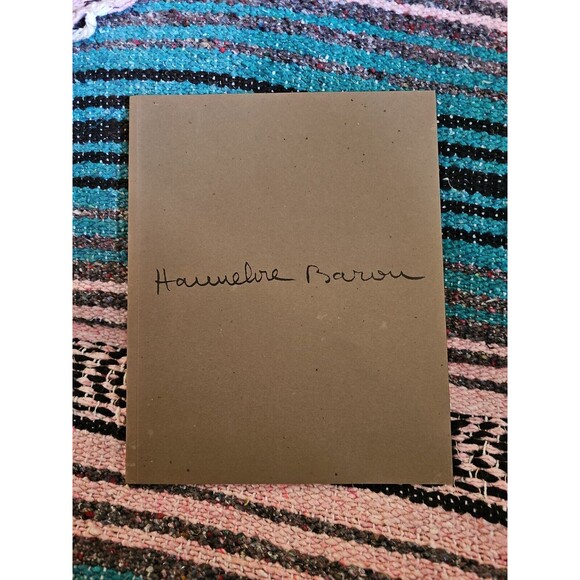 Hannelore Baron